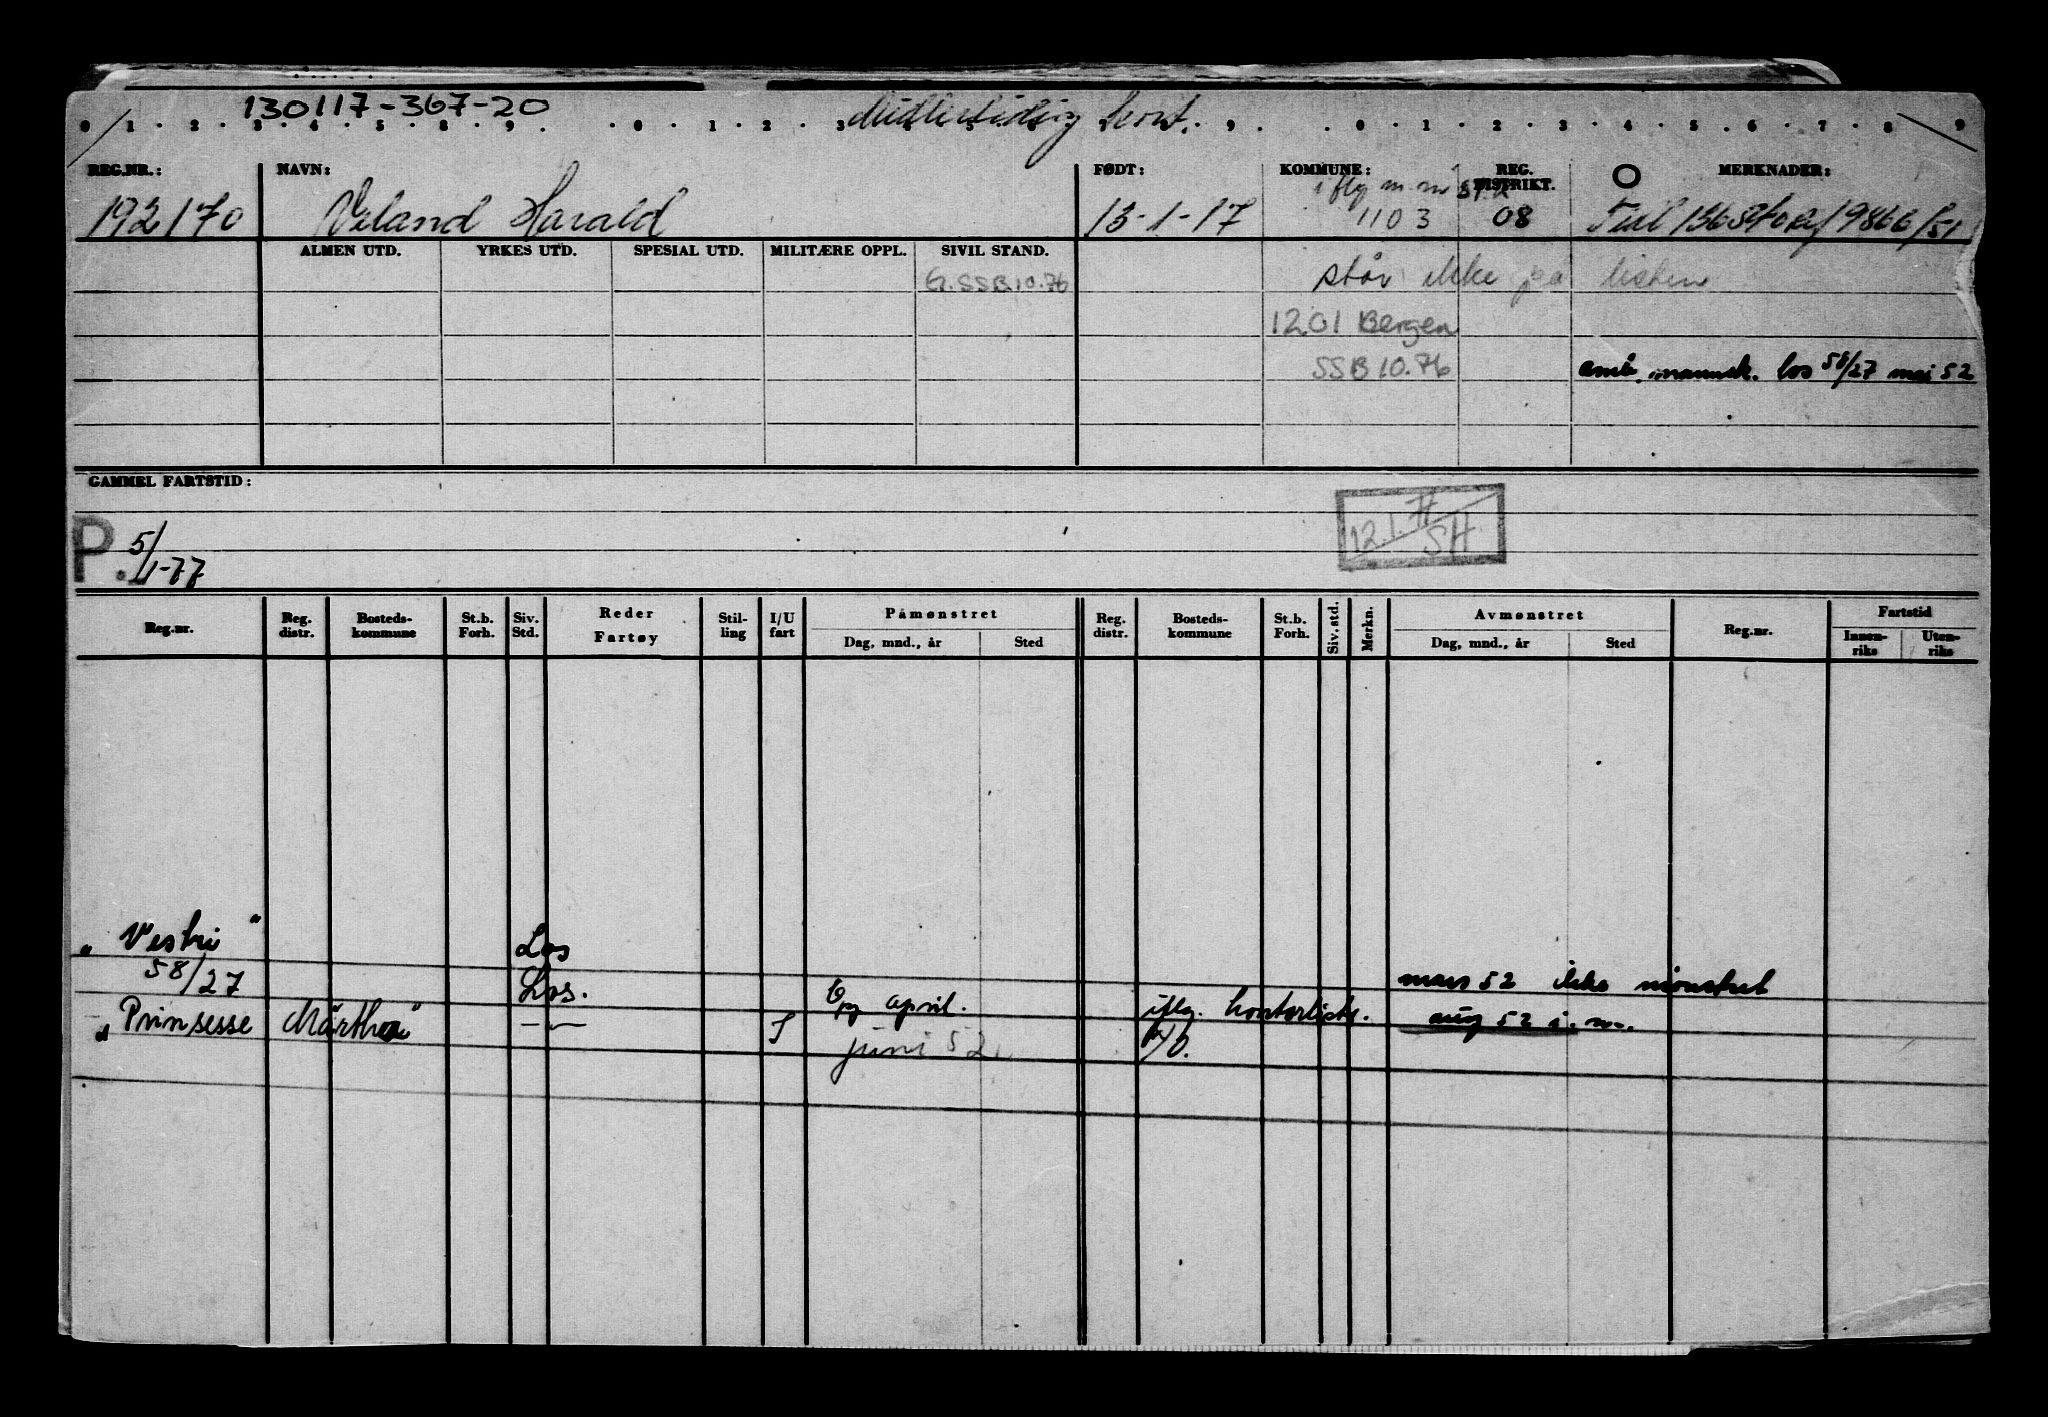 130117-367-20 Midlertidig kort.
0 1 2 3 4 5 8 9 0 1 2 3 9 0 1 2 3 4 5 6 7 8 9
REG.NR.: NAVN: FØDT: KOMMUNE: REG. DISTRIKT. MERKNADER:
iflg m.m.
192170 Veland Harald 13-1-17 1103 08
ALMEN UTD. YRKES UTD. SPESIAL UTD. MILITÆRE OPPL. SIVIL STAND.
G.SSB 10.76 står ikke på listen
1201 Bergen
SSB 10.76 los 58/27 mai 52
GAMMEL FARTSTID:
P. 5/1-77
12.1.77 SH
Reg.nr. Reg. distr. Bosteds-kommune St.b. Forh. Siv. Std. Reder Fartøy Stil-ling I/U fart Påmønstret Dag, mnd., år Sted Reg. distr. Bosteds-kommune St.b. Forh. Siv. std. Merkn. Avmønstret Dag, mnd., år Sted Reg.nr. Fartstid Innen-riks Uten-riks
"Vestri" Los
58/27 Los. og april. iflg. kontorliste. mars 52 ikke mønstret
"Prinsesse Märtha" —"— I juni 52. aug 52 i.m.